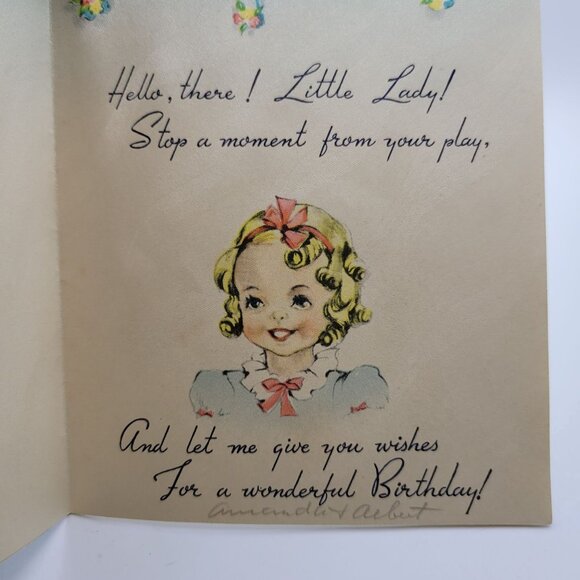 Hello, there! Little Lady!
Stop a moment from your play,
And let me give you wishes
For a wonderful Birthday!
Amanda & Aelbert